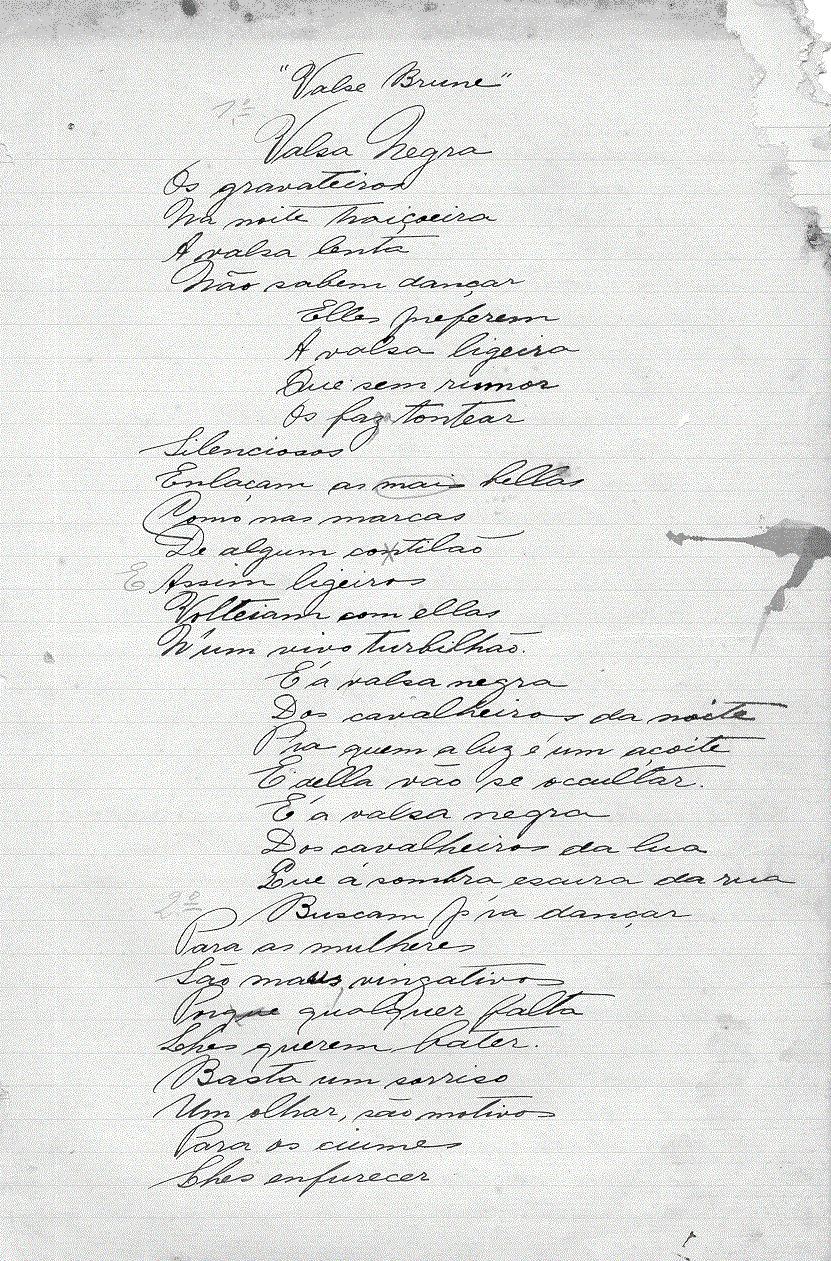 "Valse Brune"
1º
Valsa Negra
Os gravateiros
Na noite traiçoeira
A valsa lenta
Não sabem dançar
Elles preferem
A valsa ligeira
Que sem rumor
Os faz tontear
Silenciosos
Enlaçam as mais bellas
Como nas marcas
De algum contilaõ
E Assim ligeiros
Volteiam com ellas
N'um vivo turbilhão.
E'a valsa negra
Dos cavalheiros da noite
Pra quem a luz é um açoite
E della vão se occultar.
E'a valsa negra
Dos cavalheiros da lua
Que á sombra escura da rua
2º
Buscam p'ra dançar
Para as mulheres
São maus vingativos
Porque qualquer falta
Lhes querem bater.
Basta um sorriso
Um olhar, são motivos
Para os ciumes
Lhes enfurecer